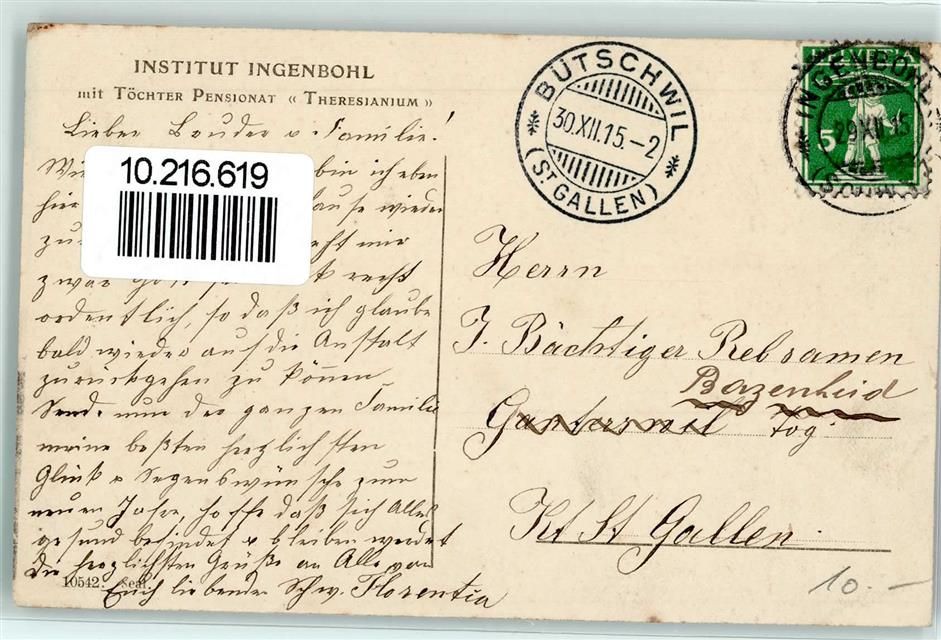 INSTITUT INGENBOHL
mit TÖCHTER PENSIONAT « THERESIANIUM »
Lieber Bruder & Familie!
bin ich eben
hier wieder
zu geht mir
zwar Gott recht
ordentlich, so daß ich glaube
bald wieder auf die Anstalt
zurückgehen zu können
Sende nun der ganzen Familie
meine beßten herzlichsten
Glück & Segenswünsche zum
neuen Jahre, hoffe daß sich Alles
gesund befindet & bleiben werdet
die herzlichsten Grüße an Alle von
Euch liebender Schw. Florentia
10542.
10.216.619
BUTSCHWIL
30.XII.15.-2
(ST GALLEN)
HELVETIA
5
INGENBOHL
29.XII.15
(SCHWYZ)
Herrn
J. Bächtiger Rebsamen
Bazenheid
Ganterswil Tog.
Kt St Gallen
10.-